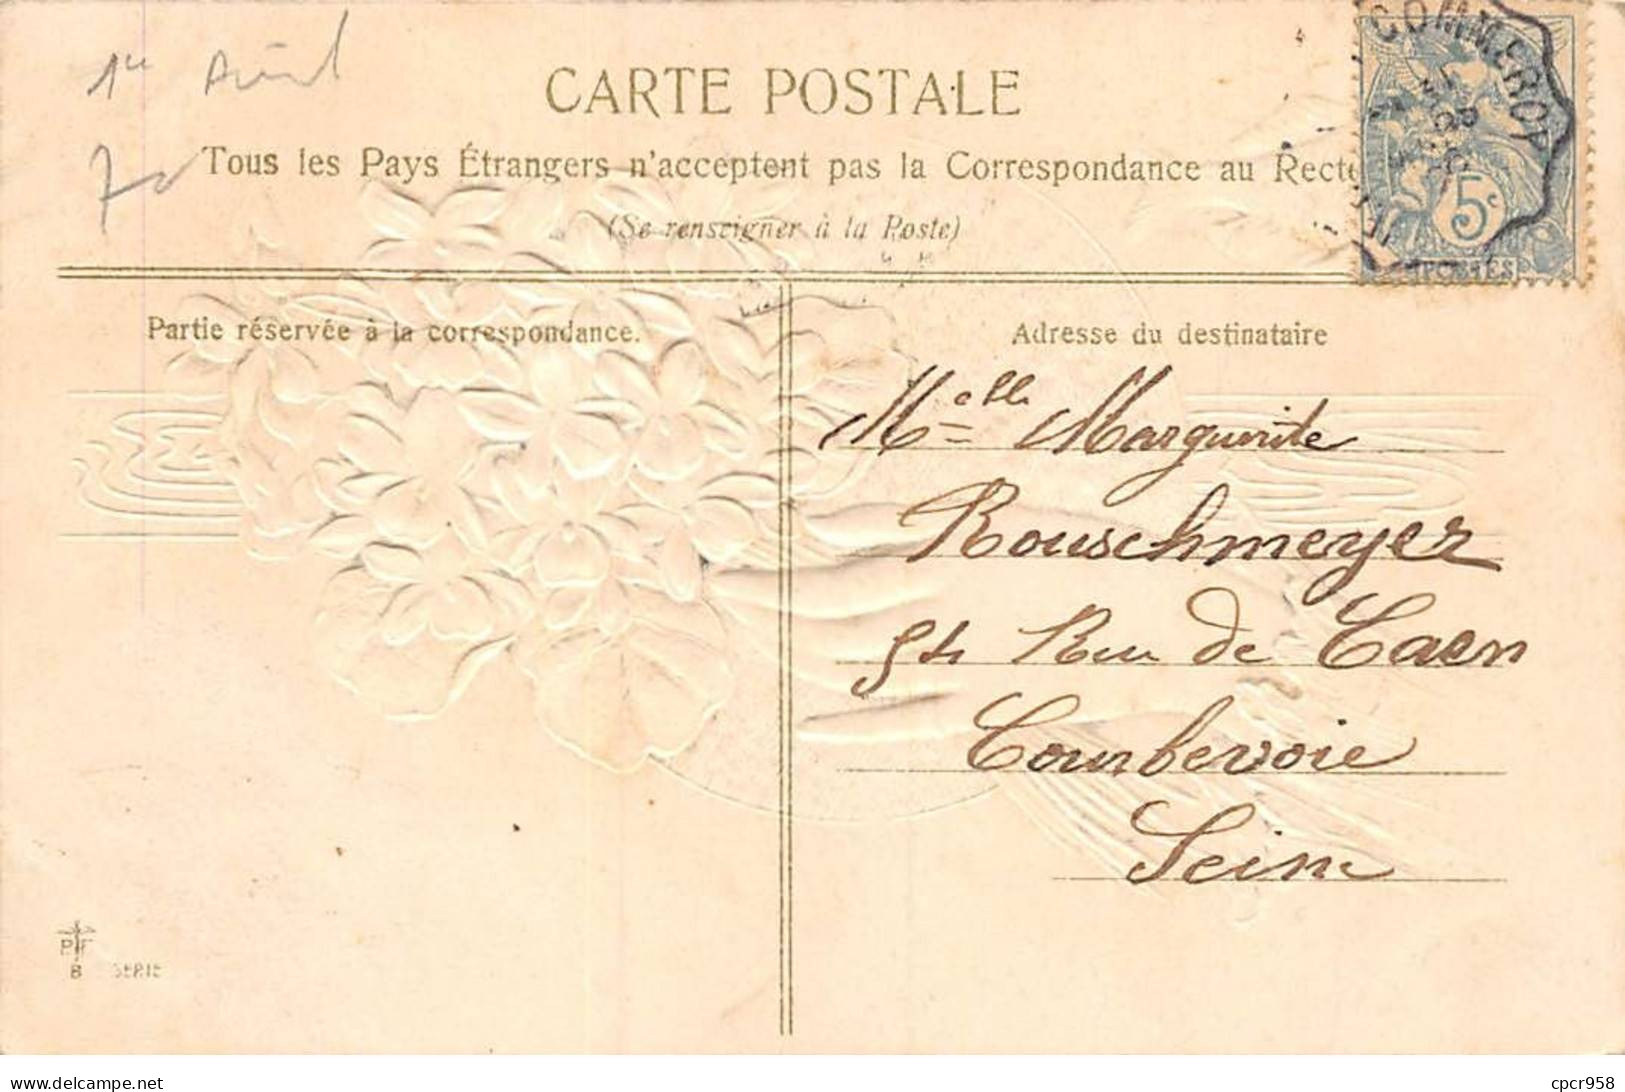 1er Avril
CARTE POSTALE
70
Tous les Pays Étrangers n'acceptent pas la Correspondance au Recto
(Se renseigner à la Poste)
5c
POSTES
Partie réservée à la correspondance.
Adresse du destinataire
Melle Marguerite
Rouschmeyer
54 Rue de Caen
Courbevoie
Seine
B SERIE
cpcr958